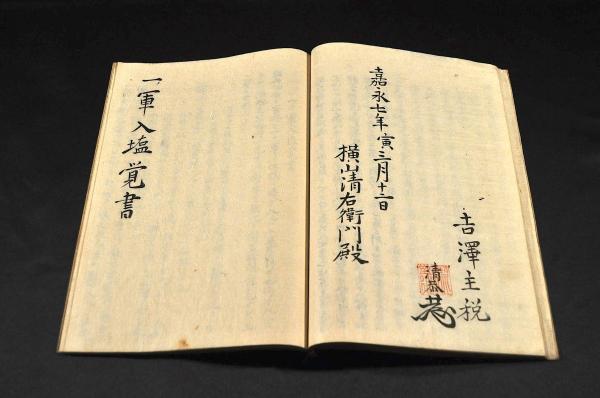 吉澤主税
清恭
嘉永七年寅三月十二日
横山清右衛門殿
一軍入塩覚書